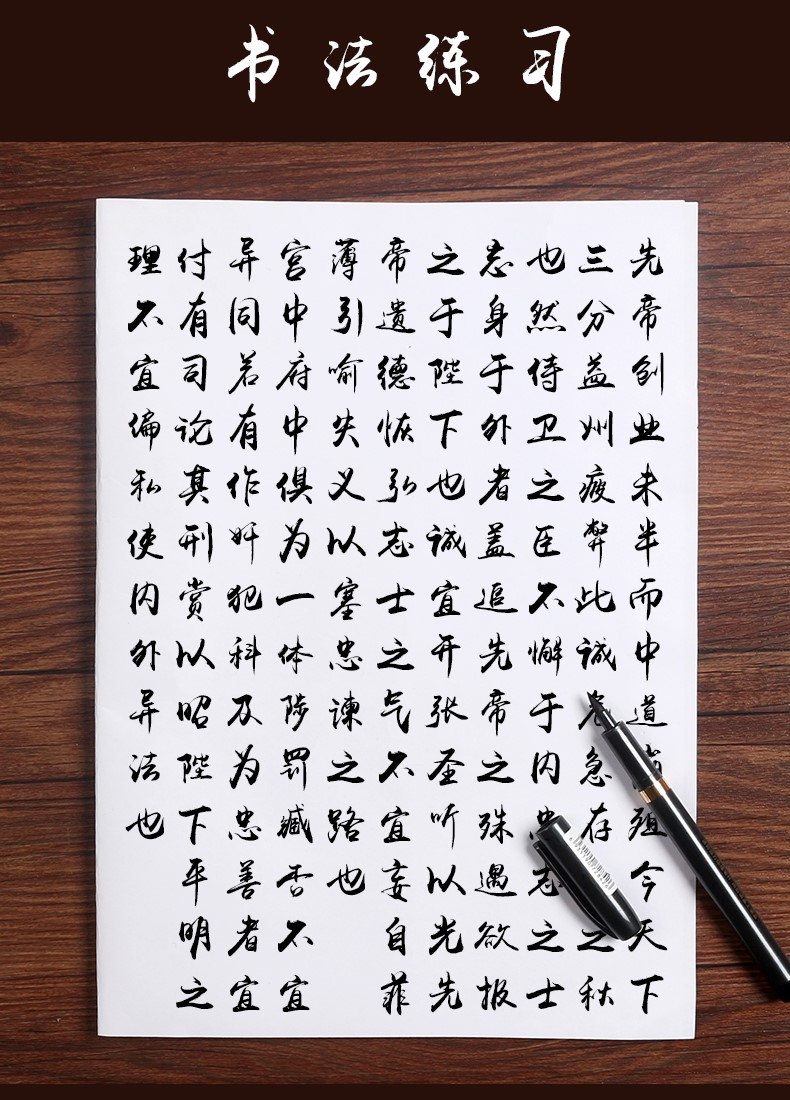 书法练习
先帝创业未半而中道殂今天下
三分益州疲弊此诚危急存之秋
也然侍卫之臣不懈于内忠志之士
忘身于外者盖追先帝之殊遇欲报
之于陛下也诚宜开张圣听以光先
帝遗德恢弘志士之气不宜妄自菲
薄引喻失义以塞忠谏之路也
宫中府中俱为一体陟罚臧否不宜
异同若有作奸犯科及为忠善者宜
付有司论其刑赏以昭陛下平明之
理不宜偏私使内外异法也